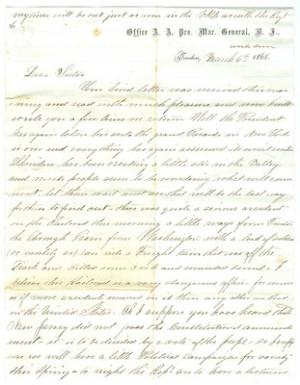 my time will be out just as soon in the
Office A. A. Pro. Mar. General, N. J.,
Trenton March 6th 1865
Dear Sister
Your kind letter was received this mor
ning and read with much pleasure and now I will
write you a few lines in return Well the President
has again taken his oath the grand Parade in New York
is over and everything has again assumed its usual
Sheridan has been creating a little stir in the Valley
and and people seem to be wondering what will come
next, let them wait and see that will be the best way
for them to find out - there was quite a serious accident
on the Railroad this morning a little ways from
the through Train from Washington with a load of soldiers
ran into a freight train that was off the
Track and killed some 3 or 4 and wounded several. I
believe this Railroad is a very dangerous affair for
if more accidents occur on it than any other road
in the United States. Oh I suppose you have heard that
New Jersey did not pass the Constitutional ammend
ment it is to be decided by a vote of the people - so
we will have a little Political Campaign for variety
this Spring - to night the have a lecture